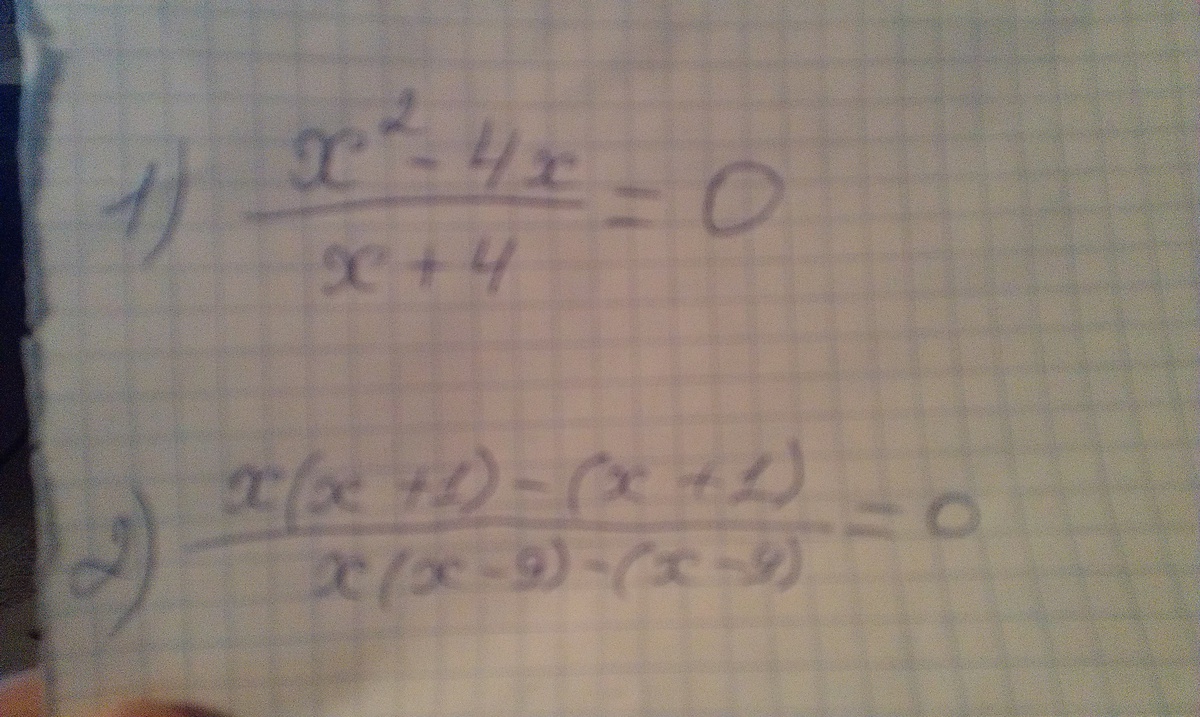 1) (x² - 4x)/(x + 4) = 0
2) (x(x + 1) - (x + 1))/(x(x - 9) - (x - 9)) = 0